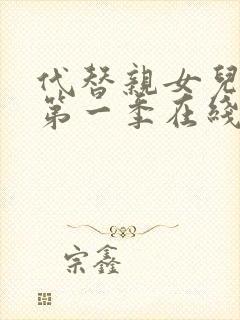 代替親女兒
第一季在綫
宗鑫